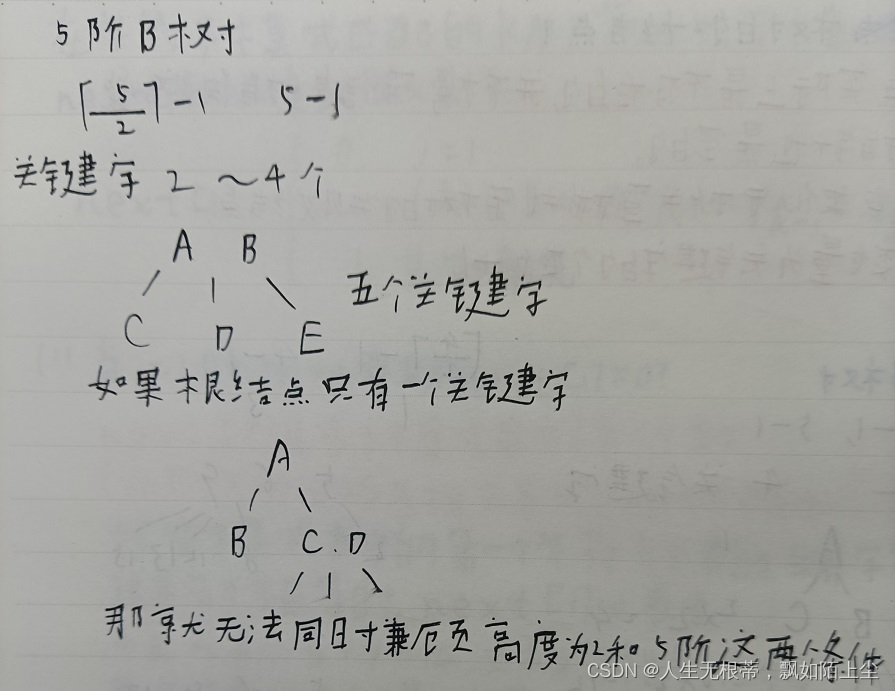 5阶B树对
⌈5/2⌉-1 5-1
关键字 2~4个
A B
五个关键字
C D E
如果根结点只有一个关键字
A
B C.D
那就无法同时兼顾高度为2和5阶这两个条件
CSDN @人生无根蒂，飘如陌上尘